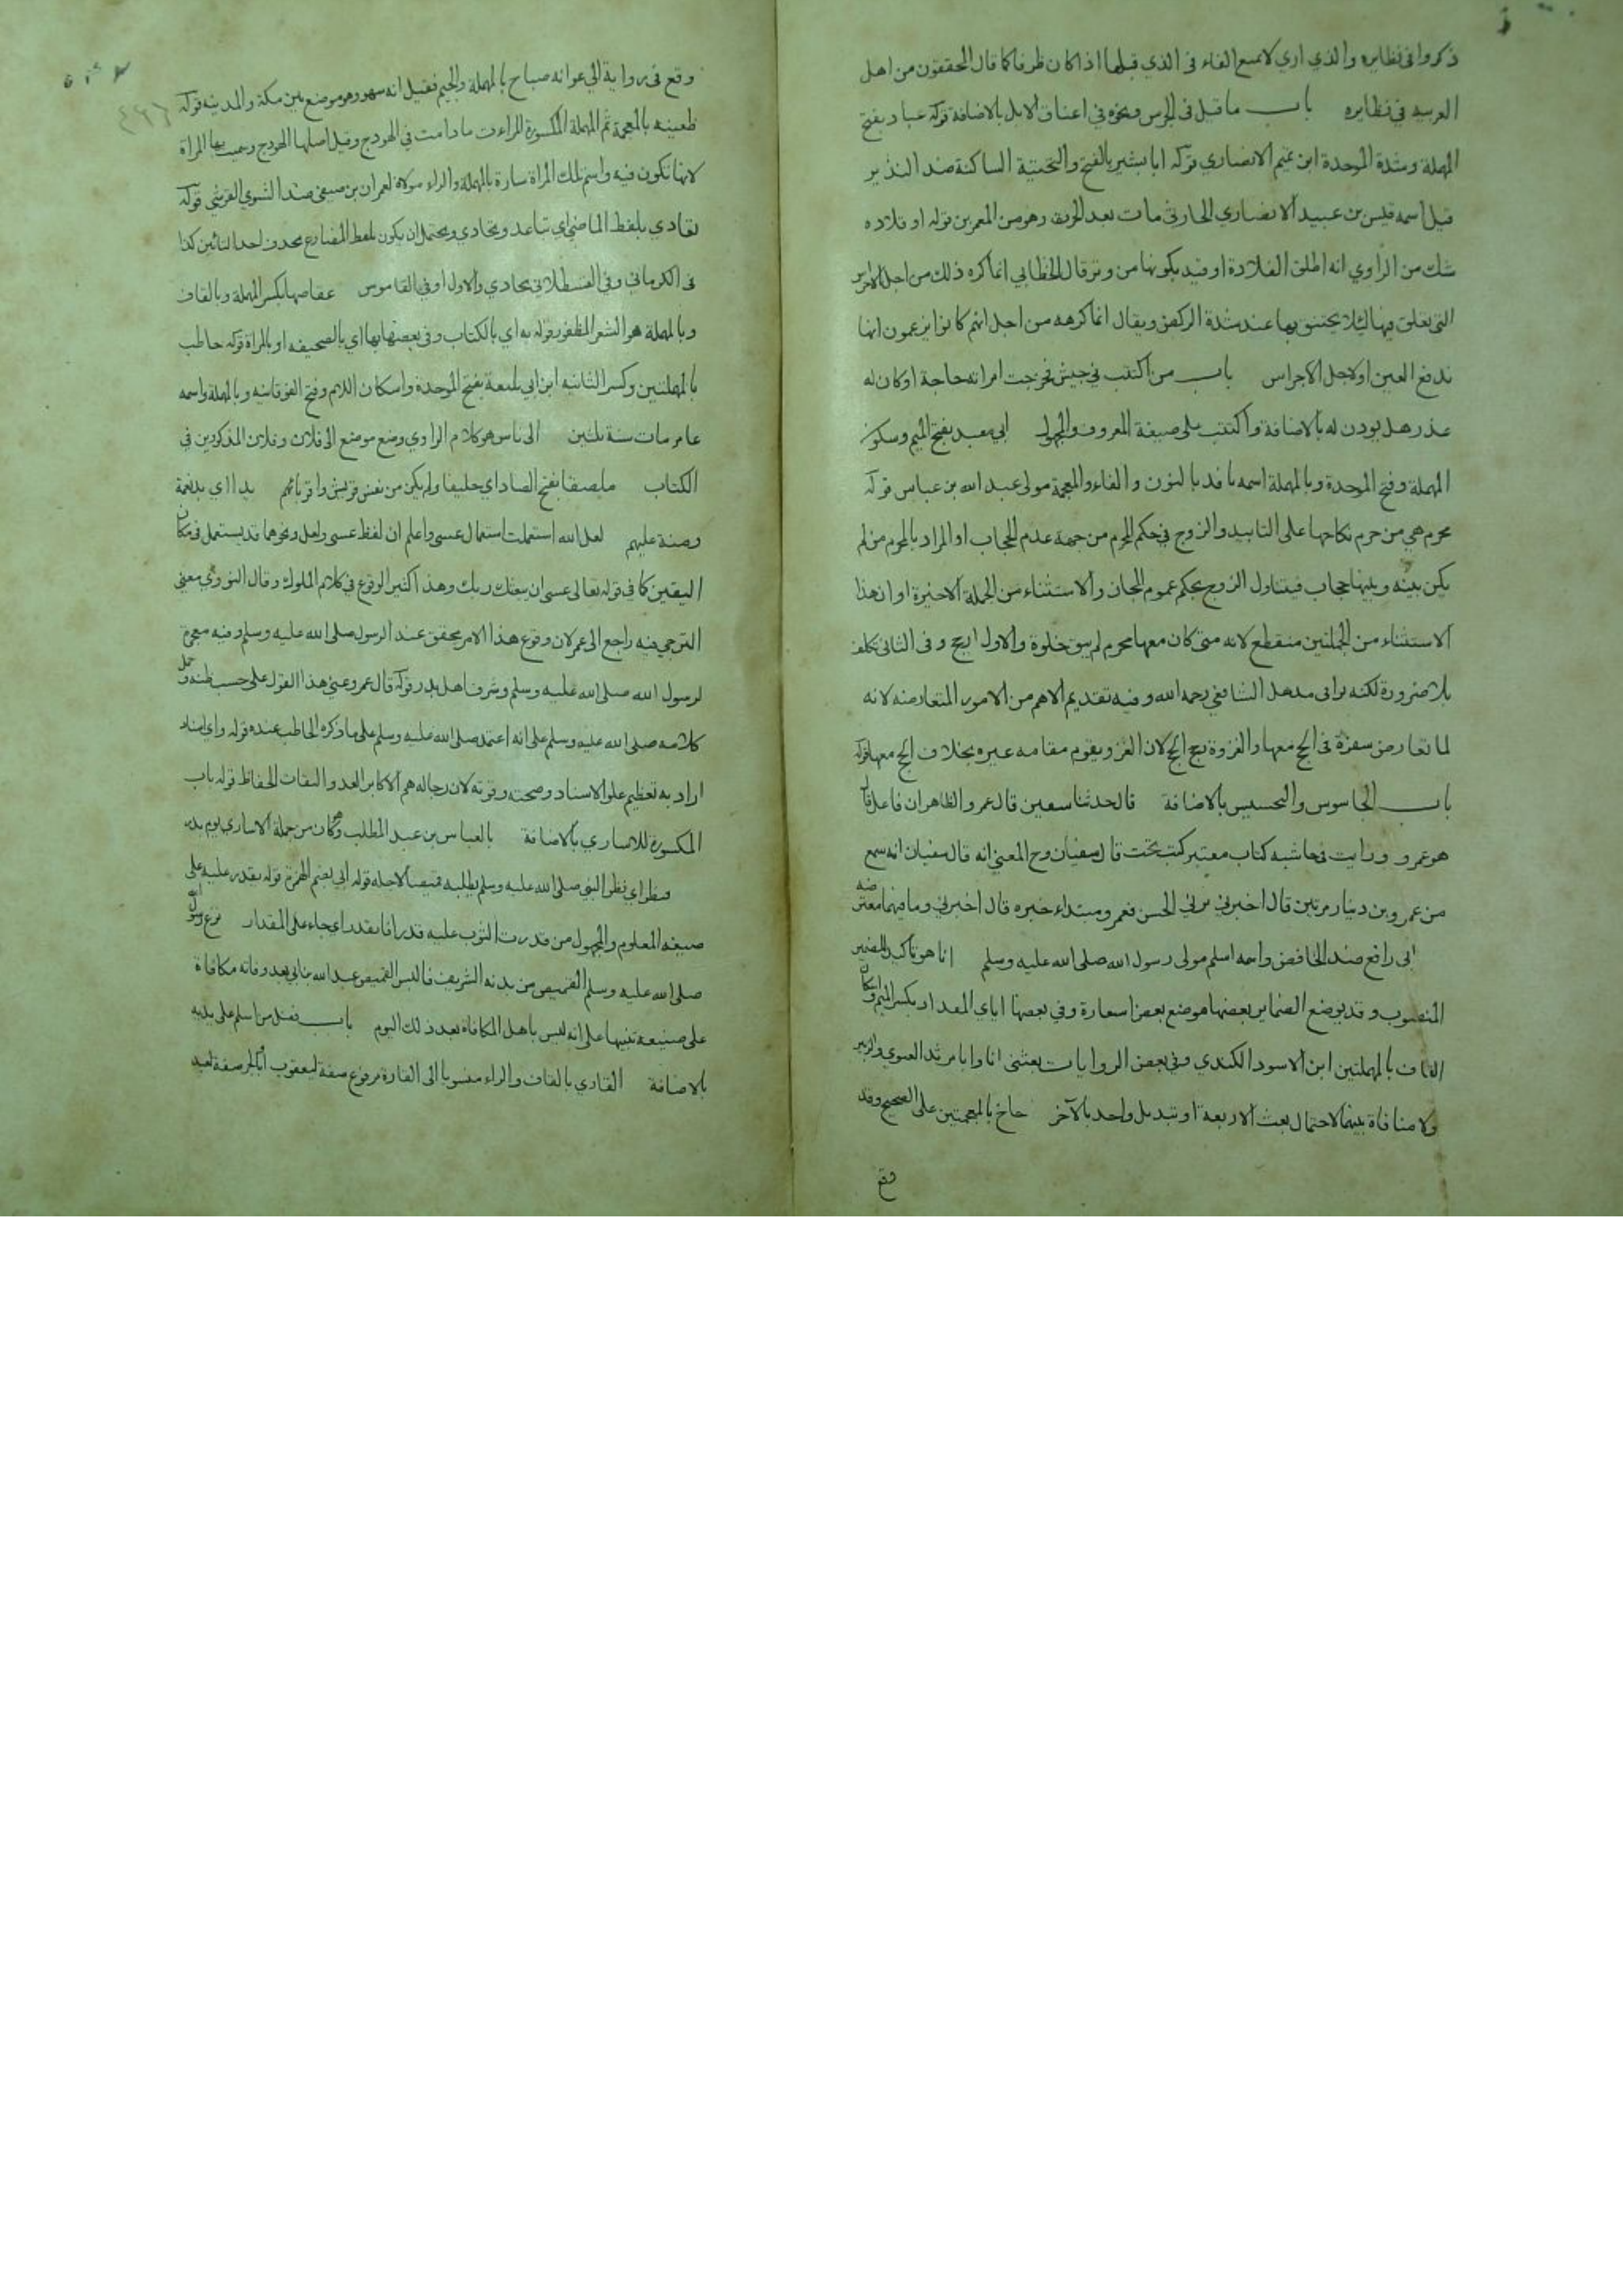 ذكروا في نظايره والذي اري لا تمنع الفاء في الذي قبلها اذا كان ظرفا كما قال المحققون من اهل
العربيه في نظايره باب ما قيل في الجرس ونحوه في اعناق الابل بالاضافة قوله عباد بفتح
المهملة وشدة الموحدة ابن تميم الانصاري قوله ابا بشير بالفتح والتحتية الساكنة ضد النذير
قيل اسمه قيس بن عبيد الانصاري الحارثي مات بعد الحرة وهو من المعمرين قوله او قلاده
شك من الراوي انه اطلق القلادة او قيد بكونها من وتر قال الخطابي انما كره ذلك من اجل الاجراس
التي تعلق بها ليلا يختنق بها عند شدة الركض ويقال انما كرهه من اجل انهم كانوا يزعمون انها
تدفع العين او لاجل الاجراس باب من اكتتب في جيش فخرجت امراته حاجة او كان له
عذر هل يوذن له بالاضافة واكتتب على صيغة المعروف والمجهول ابي معبد بفتح الميم وسكون
المهملة وفتح الموحدة وبالمهملة اسمه نافد بالنون والفاء والمعجمة مولى عبد الله بن عباس قوله
محرم هي من حرم نكاحها على التابيد والزوج في حكم المحرم من جهة عدم الحجاب او المراد بالمحرم من لم
يكن بينه وبينها حجاب فيتناول الزوج بحكم عموم المجاز والاستثناء من الجملة الاخيرة او ان هذا
الاستثناء من الجملتين منقطع لانه متى كان معها محرم لم يبق خلوة والاول ارجح وفي الثاني تكلف
بلا ضرورة لكنه يوافي مذهل الشافعي رحمه الله وفيه تقديم الاهم من الامور المتعارضه لانه
لما تعارض سفرة في الحج معها والغزوة رجح الحج لان الغزو يقوم مقامه غيره بخلاف الحج معها قوله
باب الجاسوس والتجسيس بالاضافة قال حدثنا سفين قال عمرو الظاهر ان فاعل قال
هو عمرو ورايت في حاشيه كتاب معتبر كتب تحت قال سفيان وح المعني انه قال سفيان انه سمع
من عمرو بن دينار مرتين قال اخبرني مرني الحسن فعمرو مبتداء خبره قال اخبرني وما فيهما معترضه
ابي رافع ضد الخافض واسمه اسلم مولى رسول الله صلى الله عليه وسلم انا هو تاكيد للضمير
المنصوب وقد يوضع الضماير بعضها موضع بعض استعارة وفي بعضها اياي المقداد بكسر الميم واسكان
القاف بالمهملتين ابن الاسود الكندي وفي بعض الروايات بعثني انا وابا مرثد الغنوي والزبير
ولا منافاة بينهما لاحتمال بعث الاربعة او تبديل واحد بالآخر خاخ بالمعجمتين على الصحيح وقد
وقع
وقع في رواية ابي عوانه صباح بالمهملة والجيم فقيل انه سهو وهو موضع بين مكة والمدينه قوله
ظعينه بالمعجمة ثم المهملة المكسورة المراءة ما دامت في الهودج وقيل اصلها الهودج وسميت بها المراة
لانها تكون فيه واسم تلك المراة سارة بالمهملة والراء مولاة لعمران بن صيفي ضد الشتوي القرشي قوله
تعادي بلفظ الماضي اي تباعد وتجادي ويحتمل ان يكون بلفظ المضارع بحدف احدا التائين كذا
في الكرماني وفي القسطلاني تجادي والاول اوفي القاموس عقاصها بكسر المهملة وبالقاف
وبالمهملة هو الشعر المظفور قوله به اي بالكتاب وفي بعضها بها اي بالصحيفه او بالمراة قوله حاطب
بالمهملتين وكسر الثانيه ابن ابي بلتعة بفتح الموحدة واسكان اللام وفتح الفوقانيه وبالمهملة واسمه
عامر مات سنة ثلثين الى ناس هو كلام الراوي وضع موضع الى فلان وفلان المذكورين في
الكتاب ملصقا بفتح الصاد اي حليفا ولم يكن من نفس قريش واقربائهم يدا اي يد نعمة
ومنة عليهم لعل الله استعملت استعمال عسى واعلم ان لفظ عسى ولعل ونحوهما قد يستعمل في مكان
اليقين كما في قوله تعالى عسى ان يبعثك ربك وهذا اكثير الوقوع في كلام الملوك وقال النووي معنى
الترجي فيه راجع الى عمر لان وقوع هذا الامر محقق عند الرسول صلى الله عليه وسلم وفيه معجزة
لرسول الله صلى الله عليه وسلم وشرف اهل بدر قوله قال عمرو عني هذا القول على حسب ظنه وحمل
كلامه صلى الله عليه وسلم على انه اعتمد صلى الله عليه وسلم على ما ذكره الحاطب عنده قوله واي اسناد
اراد به تعظيم علو الاسناد وصحته وقوته لان رجاله هم الاكابر العدو الثقات الحفاظ قوله باب
المكسورة للاساري بالاضافة بالعباس بن عبد المطلب وكان من جملة الاساري يوم بدر
فنظر اي نظر النبي صلى الله عليه وسلم يطلبه قميصا لاجله قوله ابي بضم الهمزة قوله يقدر عليه على
صيغه المعلوم والمجهول من قدرت الثوب عليه قدرا فانقدر اي جاء على المقدار نزع رسول الله
صلى الله عليه وسلم القميص من بدنه الشريف فالبس القميص عبد الله بن ابي بعد وفاته مكافاة
على صنيعه تنبيها على انه ليس باهل المكافاة بعد ذلك اليوم باب فضل من اسلم على يديه
بالاضافة القاري بالقاف والراء منسوبا الى القارة مرفوع صفة ليعقوب